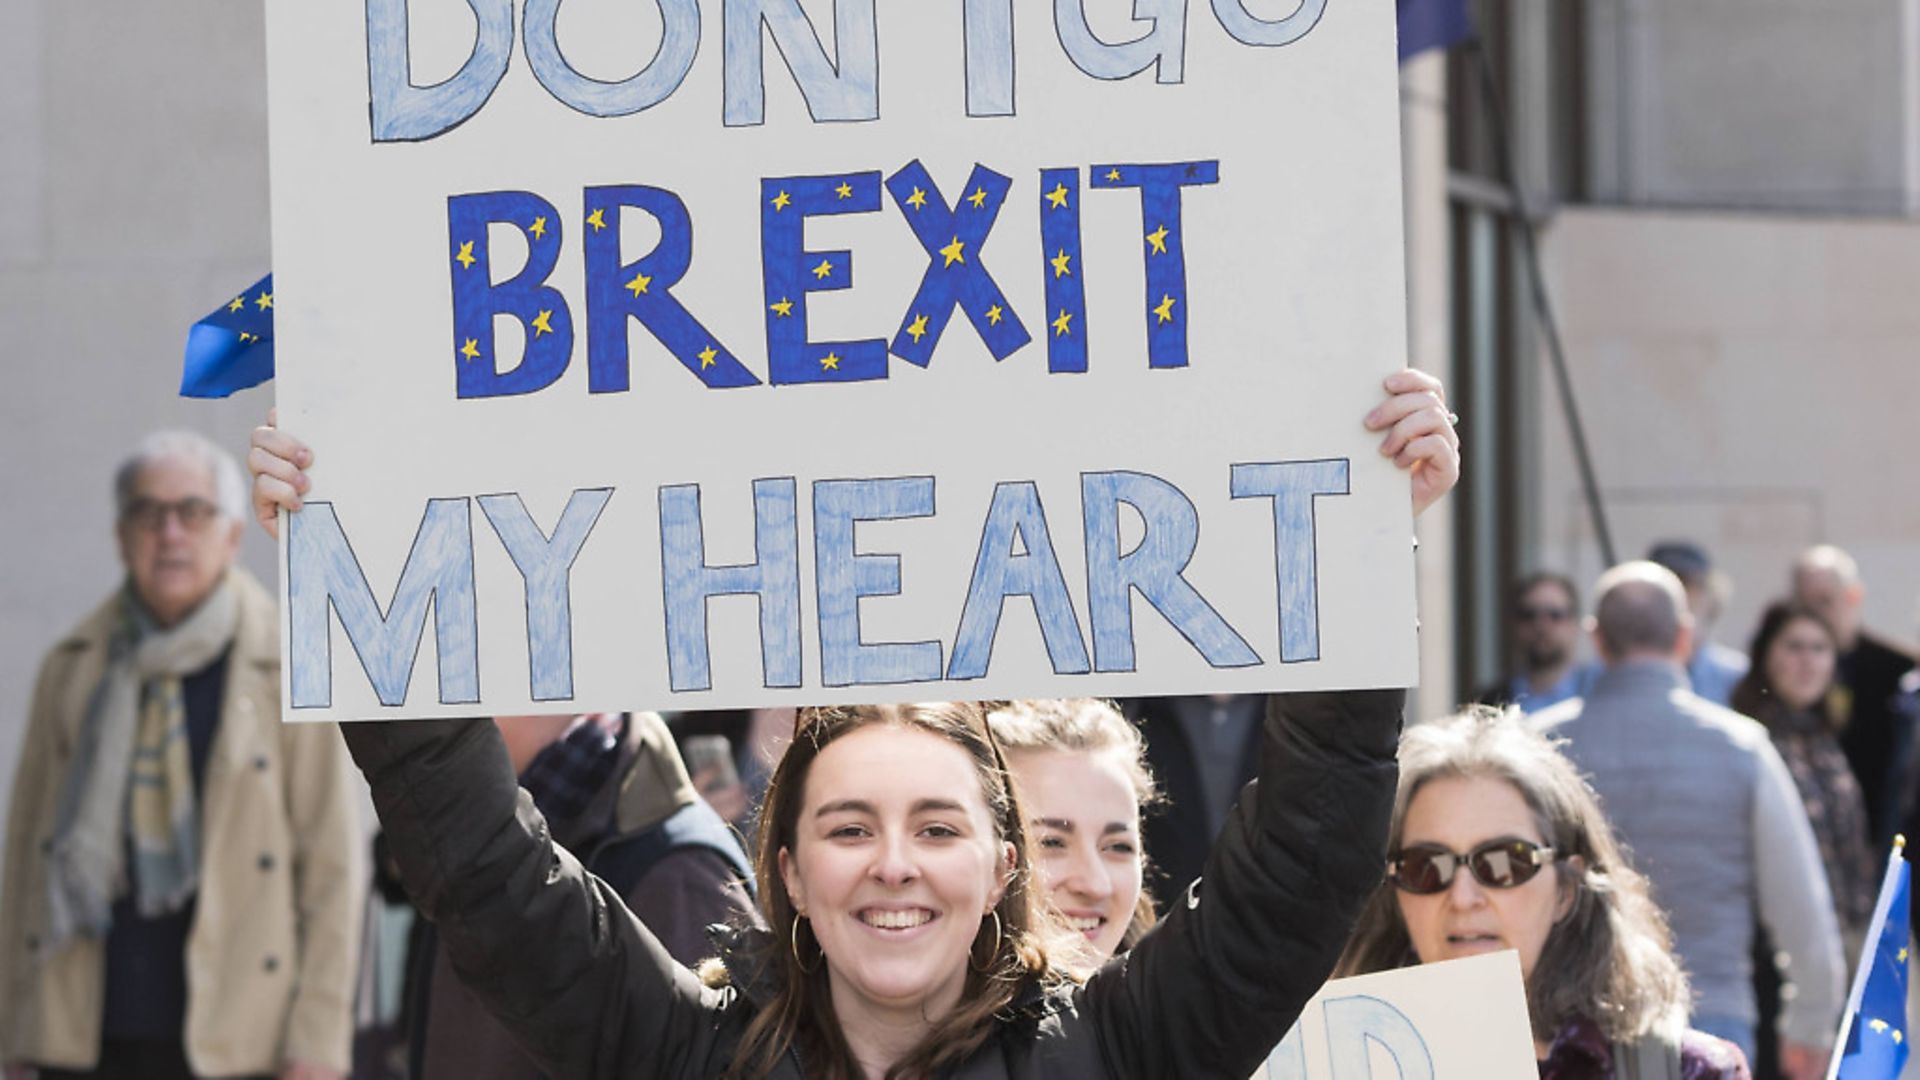 DON'T GO
BREXIT
MY HEART